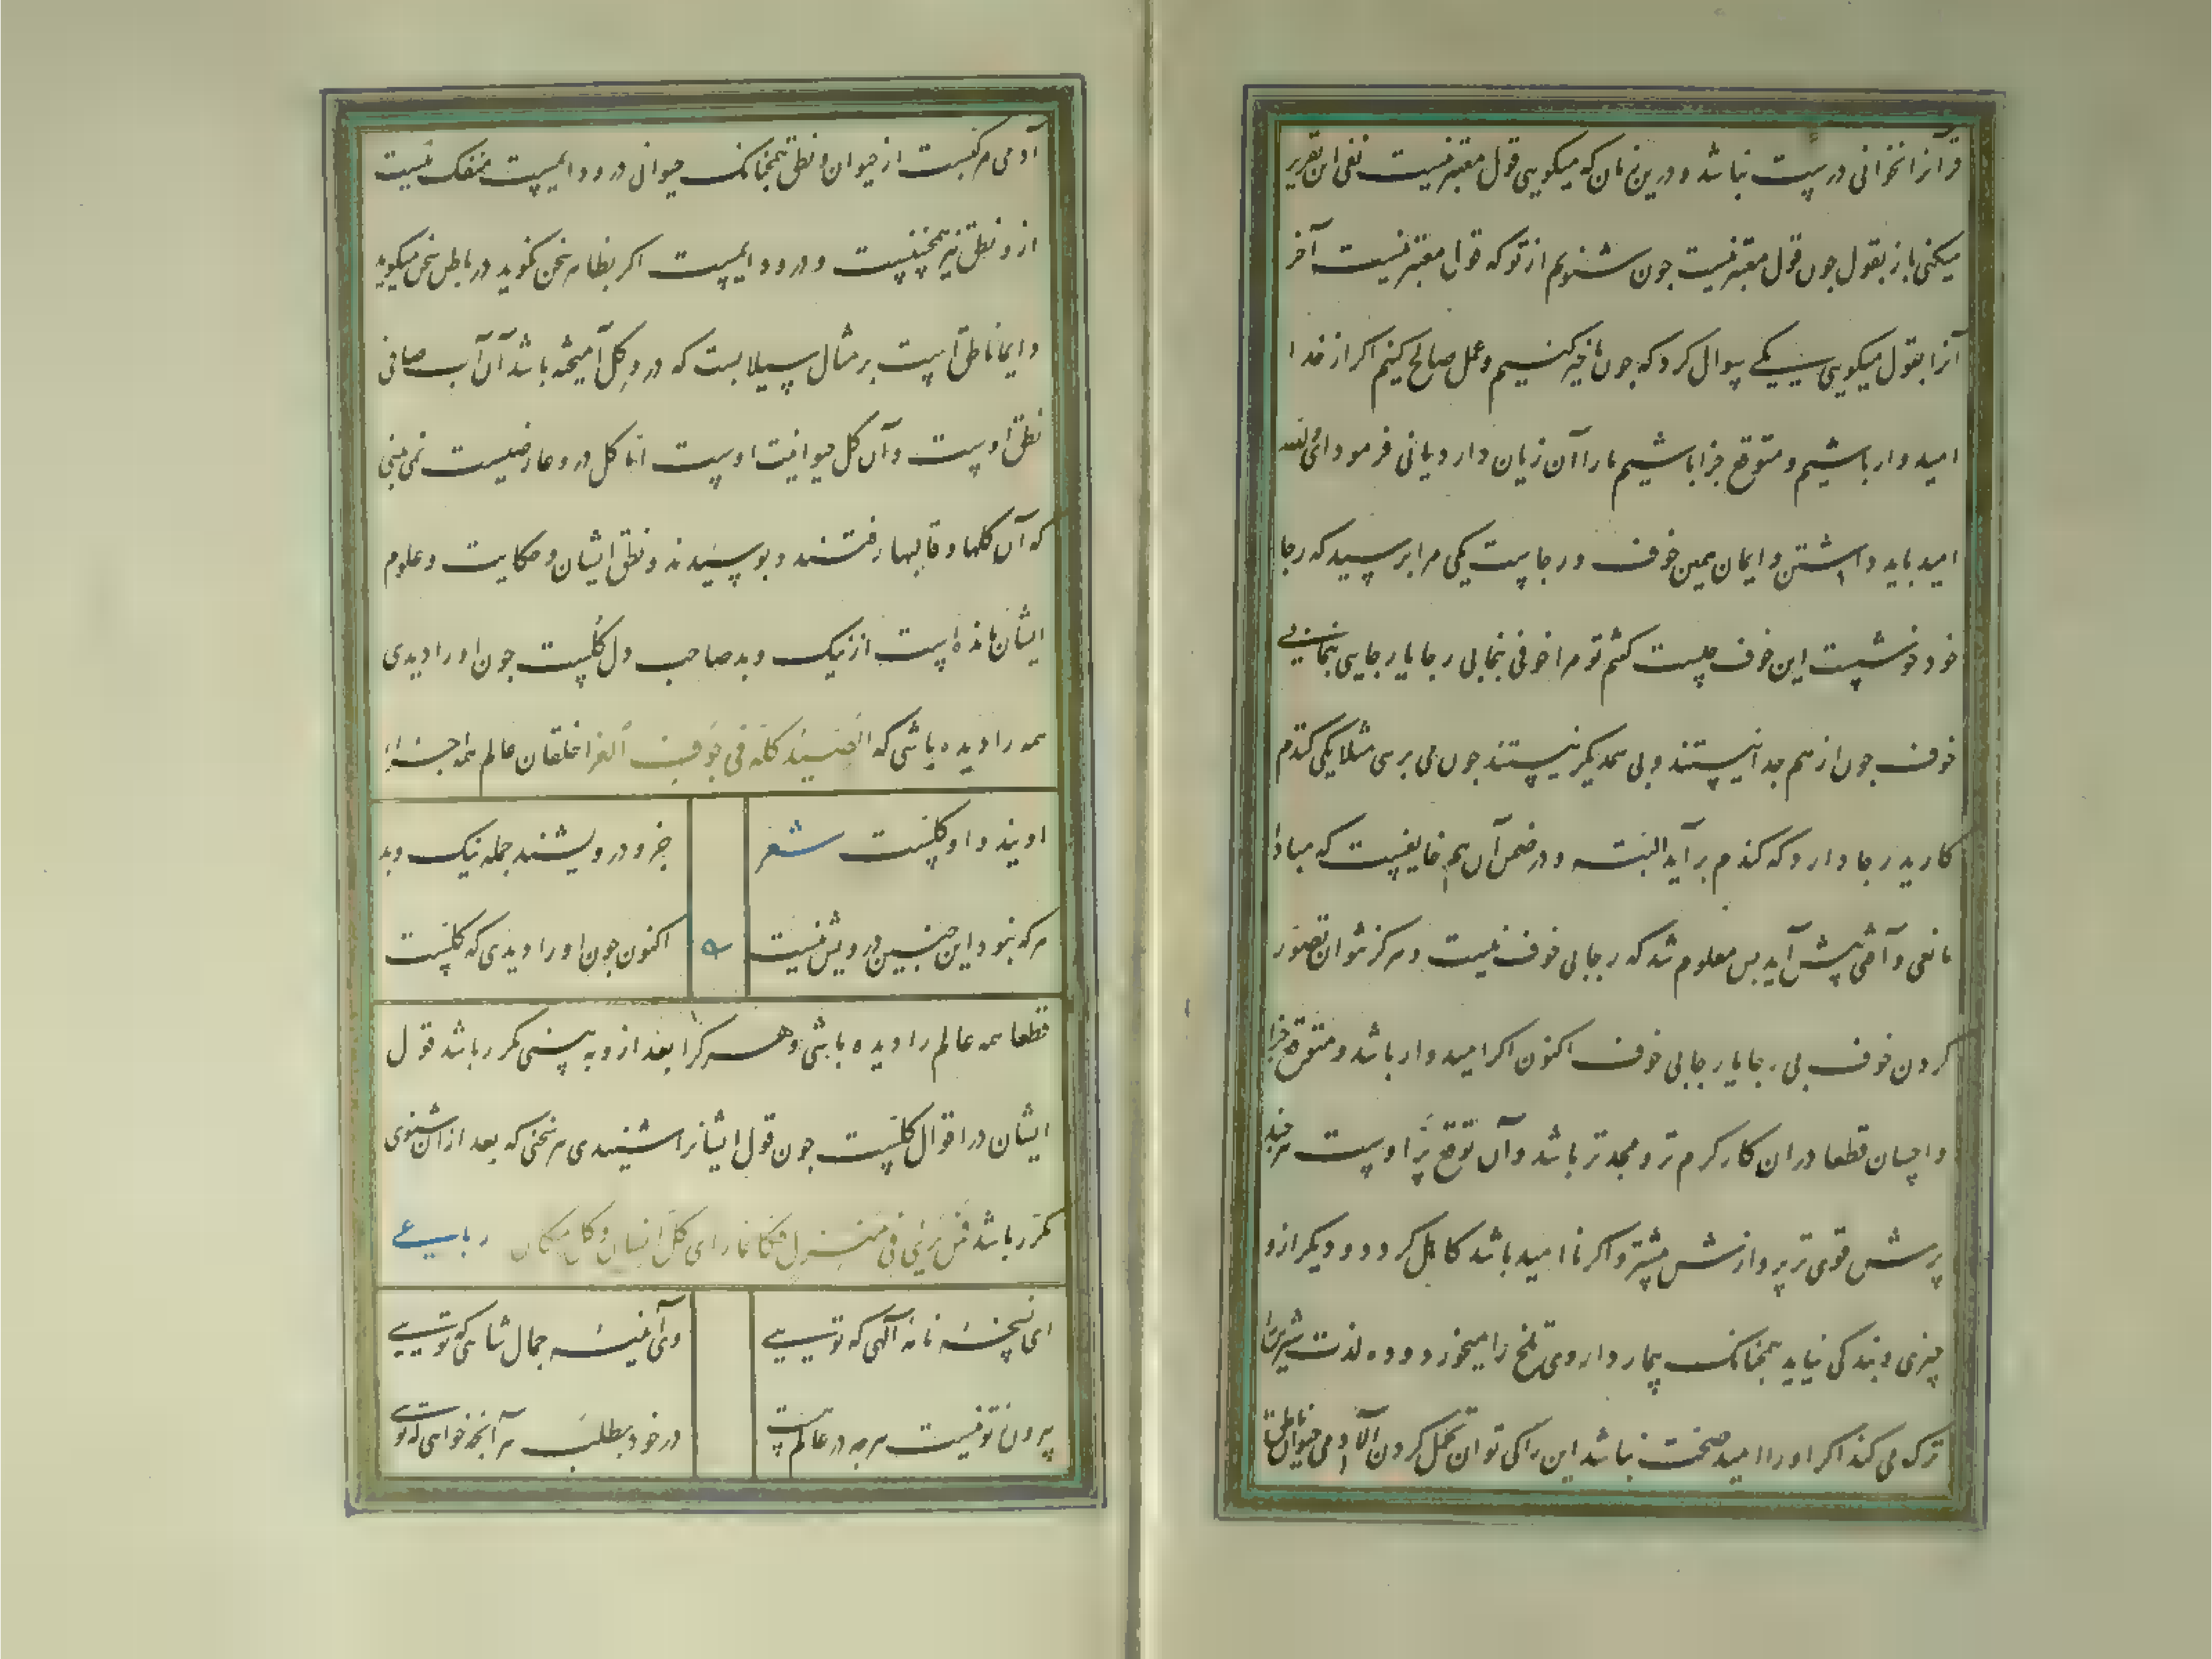 قرآنرا نخوانی درست نباشد و درین زمان که میکویی قول معتبر نیست نفی این تقریر
میکنی باز بقول چون قول معتبر نیست چون شنویم از تو که قول معتبر نیست آخر
آنرا بقول میکویی یکی سوال کرد که چون ما خیر کنیم و عمل صالح کنیم اکر از خدا
امیدوار باشیم و متوقع جزا باشیم ما را آن زیان دارد یا نی فرمود ای والله
امید باید داشتن و ایمان همین خوف و رجاست یکی مرا پرسید که رجا
خود خوشست این خوف چیست کفتم تو مرا خوفی بنما بی رجا یا رجایی بنما بی
خوف چون از هم جدا نیستند و بی همدیکر نیستند چون می پرسی مثلا یکی کندم
کارید رجا دارد که کندم برآید البته و در ضمن آن هم خایفست که مبادا
مانعی و آفتی پیش آید پس معلوم شد که رجا بی خوف نیست و هرکز نتوان تصور
کردن خوف بی رجا یا رجا بی خوف اکنون اکر امیدوار باشد و متوقع جزا
و احسان قطعا در ان کار کرم تر و مجدتر باشد و آن توقع پر اوست هرچند
پرش قوی تر پروازش بیشتر و اکر ناامید باشد کاهل کردد و دیکر ازو
چیزی و بندکی نیاید همچنانک بیمار داروی تلخ را میخورد و ده لذت شیرین را
ترک می کند اکر او را امید صحت نباشد این را کی تواند تحمل کردن الآدمی حیوان ناطق
آدمی مرکبست از حیوان و نطق همچنانک حیوانی درو دایمست منفک نیست
ازو نطق نیز همچنینست و درو دایمست اکر بظاهر سخن نکوید در باطن سخن میکوید
دایما ناطقست بر مثال سیلابست که درو کل آمیخته باشد آن آب صافی
نطق اوست و آن کل حیوانیت اوست اما کل درو عارضیست نمی بینی
که آن کلها و قالبها رفتند و پوسیدند و نطق ایشان و حکایت و علوم
ایشان مانده است از نیک و بد صاحب دل کلست چون او را دیدی
همه را دیده باشی که الصید کله فی جوف الفرا خلقان عالم همه اجزای
اویند و او کلست شعر جزو درویشند جمله نیک و بد
هرکه نبود این چنین درویش نیست اکنون چون او را دیدی که کلست
قطعا همه عالم را دیده باشی و هر کرا بعد ازو ببینی مکرر باشد قول
ایشان در اقوال کلست چون قول ایشانرا شنیدی هر سخنی که بعد از آن شنوی
مکرر باشد فمن یرنی فی منزل فکانما رای کل انسان و کل مکان رباعی
ای نسخه نامه الهی که تویی وی آینه جمال شاهی که تویی
بیرون ز تو نیست هرچه در عالم هست در خود بطلب هر آنچه خواهی که تویی